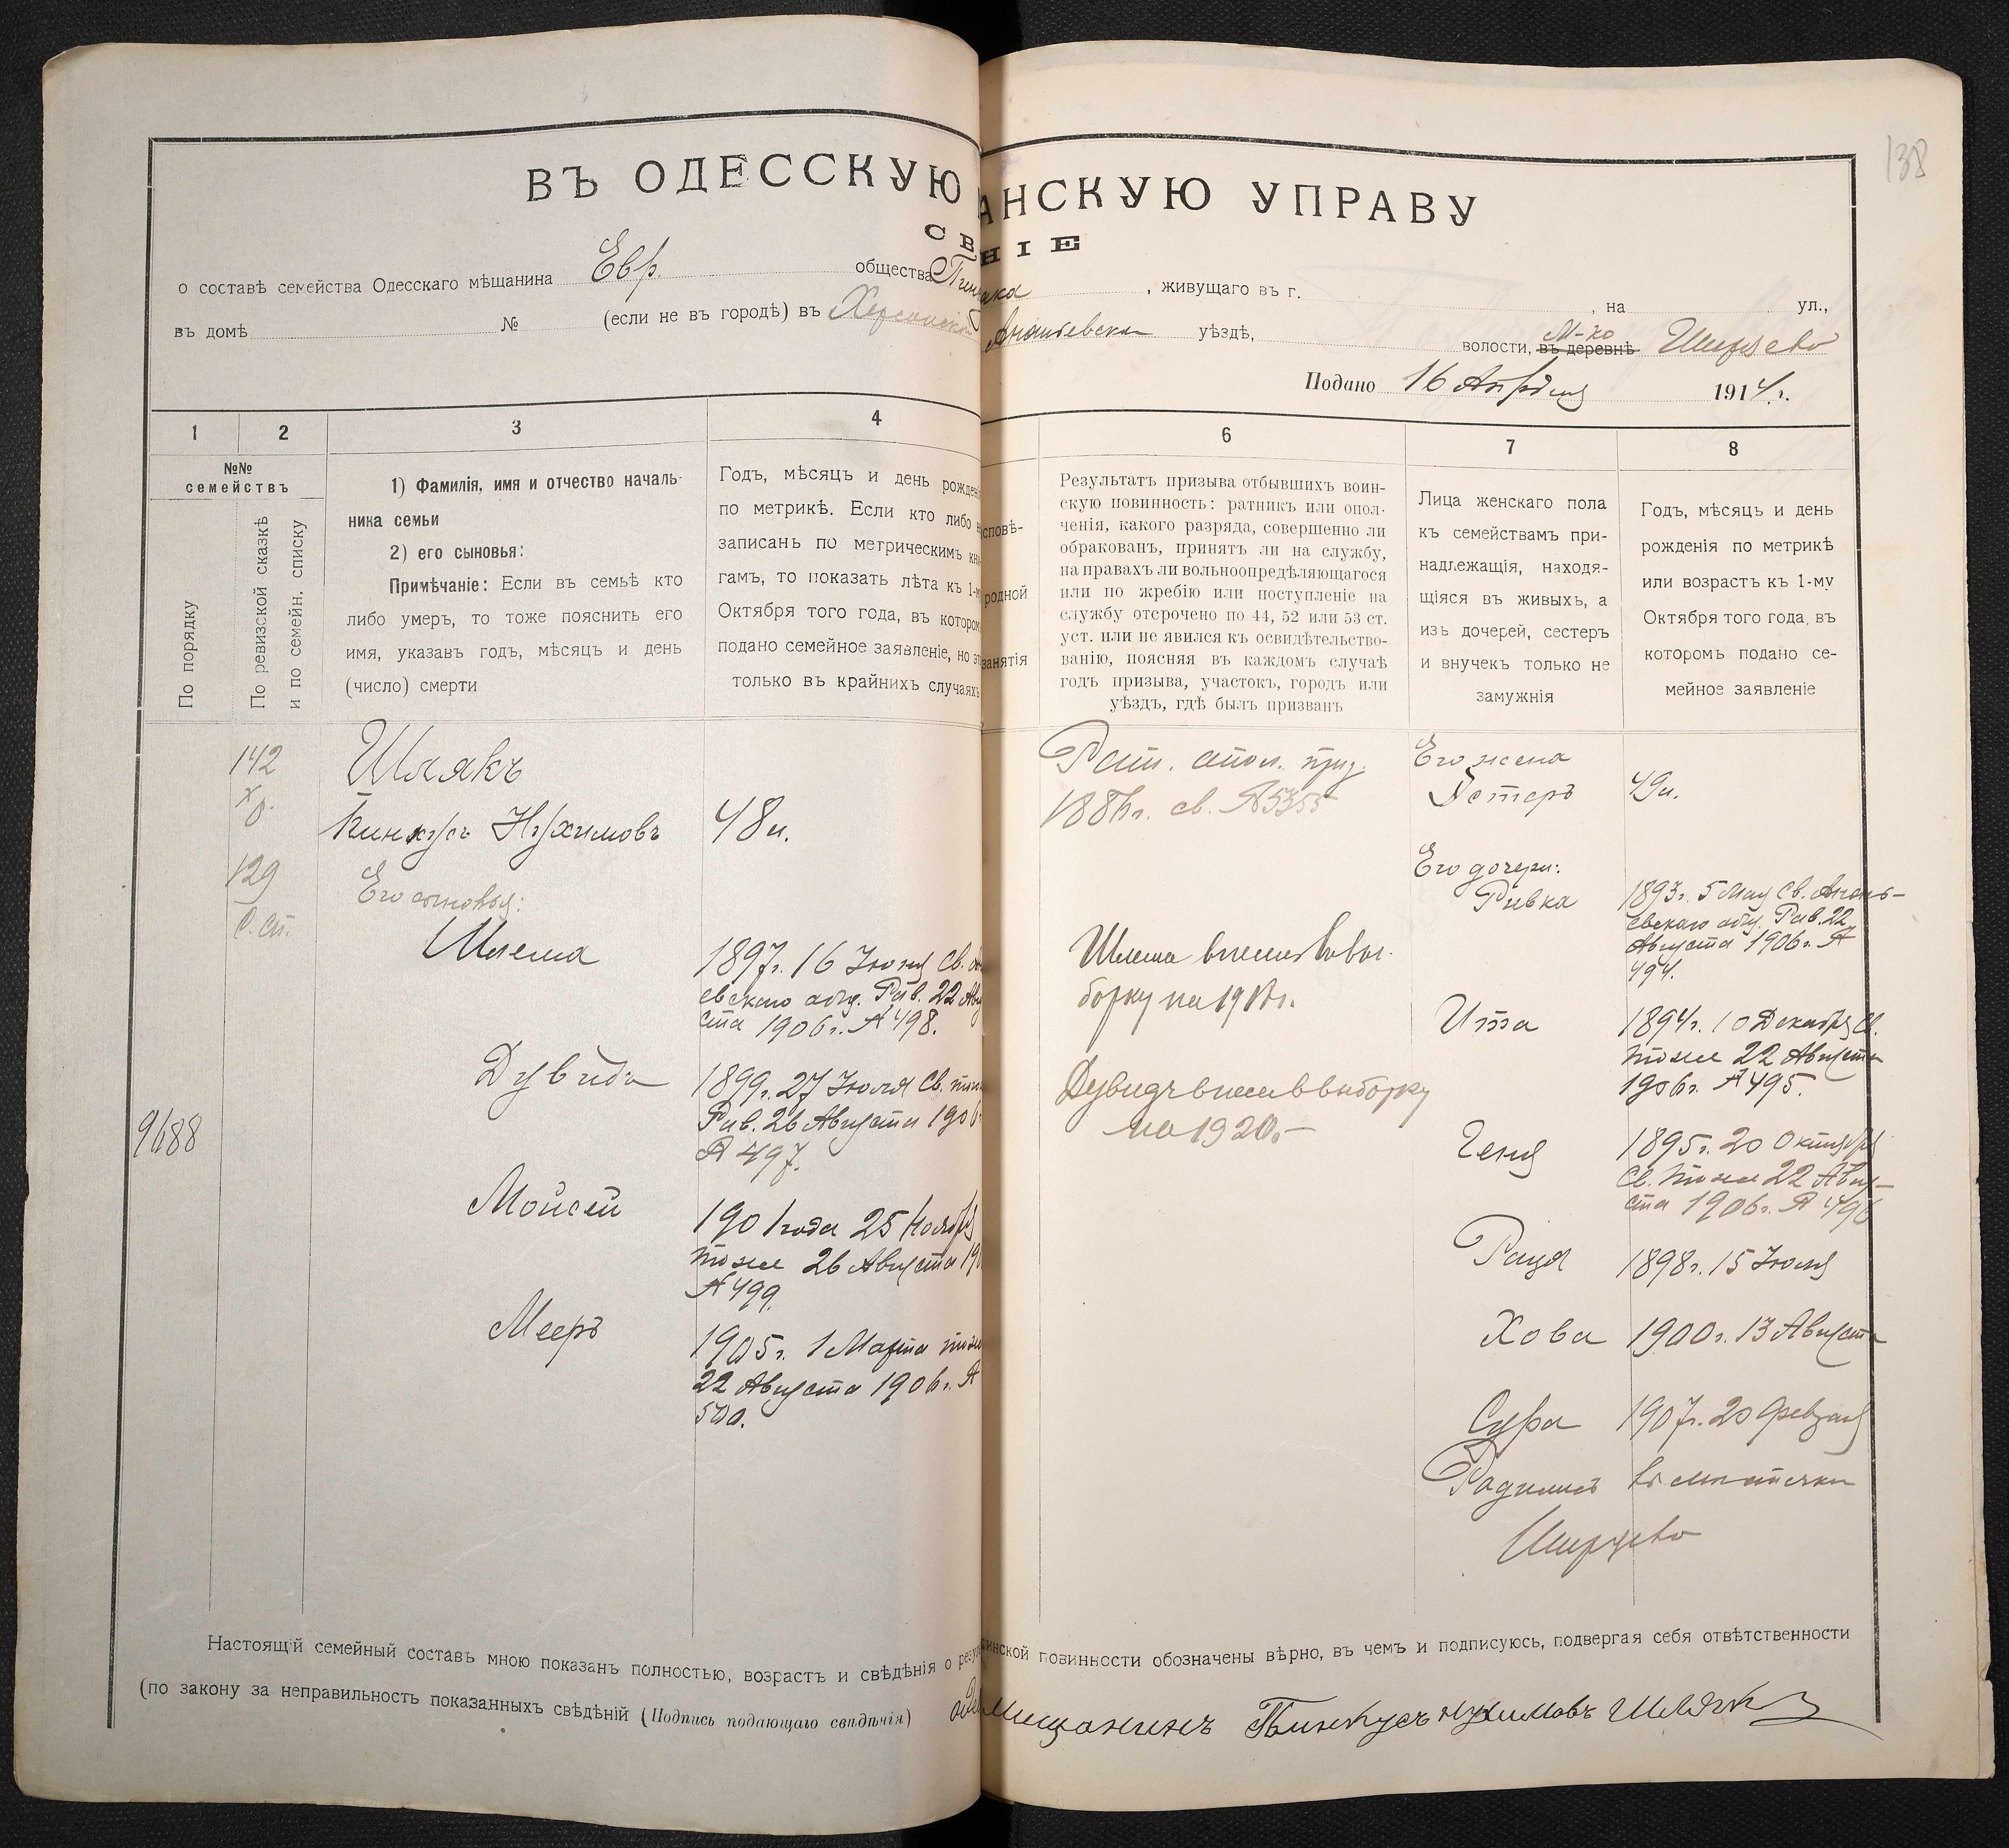 138
ВЪ ОДЕССКУЮ АНСКУЮ УПРАВУ
СВ НІЕ
о составѣ семейства Одесскаго мѣщанина Евр. общества , живущаго въ г. , на ул.,
въ домѣ № (если не въ городѣ) въ Херсонской Ананьевском уѣздѣ, волости, въ деревнѣ М-ко Ширяево
Подано 16 Апрѣля 1914 г.
1 2 3 4 6 7 8
№№ семействъ
По порядку
По ревизской сказкѣ
и по семейн. списку
1) Фамилія, имя и отчество началь-
ника семьи
2) его сыновья:
Примѣчаніе: Если въ семьѣ кто
либо умеръ, то тоже пояснить его
имя, указавъ годъ, мѣсяцъ и день
(число) смерти
Годъ, мѣсяцъ и день рожден
по метрикѣ. Если кто либо
записанъ по метрическимъ кни
гамъ, то показать лѣта къ 1-му
Октября того года, въ котором
подано семейное заявленіе, но эт
только въ крайнихъ случаяхъ
сповѣ-
родной
занятія
Результатъ призыва отбывшихъ воин-
скую повинность: ратникъ или опол-
ченія, какого разряда, совершенно ли
обракованъ, принятъ ли на службу,
на правахъ ли вольноопредѣляющагося
или по жребію или поступленіе на
службу отсрочено по 44, 52 или 53 ст.
уст. или не явился къ освидѣтельство-
ванію, поясняя въ каждомъ случаѣ
годъ призыва, участокъ, городъ или
уѣздъ, гдѣ былъ призванъ
Лица женскаго пола
къ семействамъ при-
надлежащія, находя-
щіяся въ живыхъ, а
изъ дочерей, сестеръ
и внучекъ только не
замужнія
Годъ, мѣсяцъ и день
рожденія по метрикѣ
или возрастъ къ 1-му
Октября того года, въ
которомъ подано се-
мейное заявленіе
9688
142
129
С. сп.
Шлякъ
Пинкусъ Нухимовъ 48 л.
Его сыновья:
Шлема
1897 г. 16 Іюня Св.
евскаго общ. Рав. 22 Авгу
ста 1906 г. № 498.
Дувидъ
1899 г. 27 Іюля Св. тож
Рав. 26 Августа 1906
№ 497.
Моисей
1901 года 25 Ноября
тоже 26 Августа 190
№ 499.
Мееръ
1905 г. 1 Марта тож
22 Августа 1906 г. №
500.
Рат. опол. приз.
1886 г. св. № 5355
Шлема внесенъ въ вы-
борку на 1918 г.
Дувидъ внесен в выборку
на 1920 г.
Его жена
Эстеръ 49 л.
Его дочери:
Ривка
1893 г. 5 Мая Св. Анань-
евскаго общ. Рав. 22
Августа 1906 г. №
494.
Ита
1894 г. 10 Декабря Св.
тоже 22 Августа
1906 г. № 495.
Геня
1895 г. 20 Октября
Св. тоже 22 Авгу-
ста 1906 г. № 496
Рася 1898 г. 15 Іюля
Хова 1900 г. 13 Августа
Сура 1907 г. 20 Февраля
Родились въ мѣстечкѣ
Ширяево
Настоящій семейный составъ мною показанъ полностью, возрастъ и свѣдѣнія о резул инской повинности обозначены вѣрно, въ чемъ и подписуюсь, подвергая себя отвѣтственности
(по закону за неправильность показанныхъ свѣдѣній (Подпись подающаго свѣдѣнія) Мещанинъ Пинкусъ Нухимовъ Шлякъ